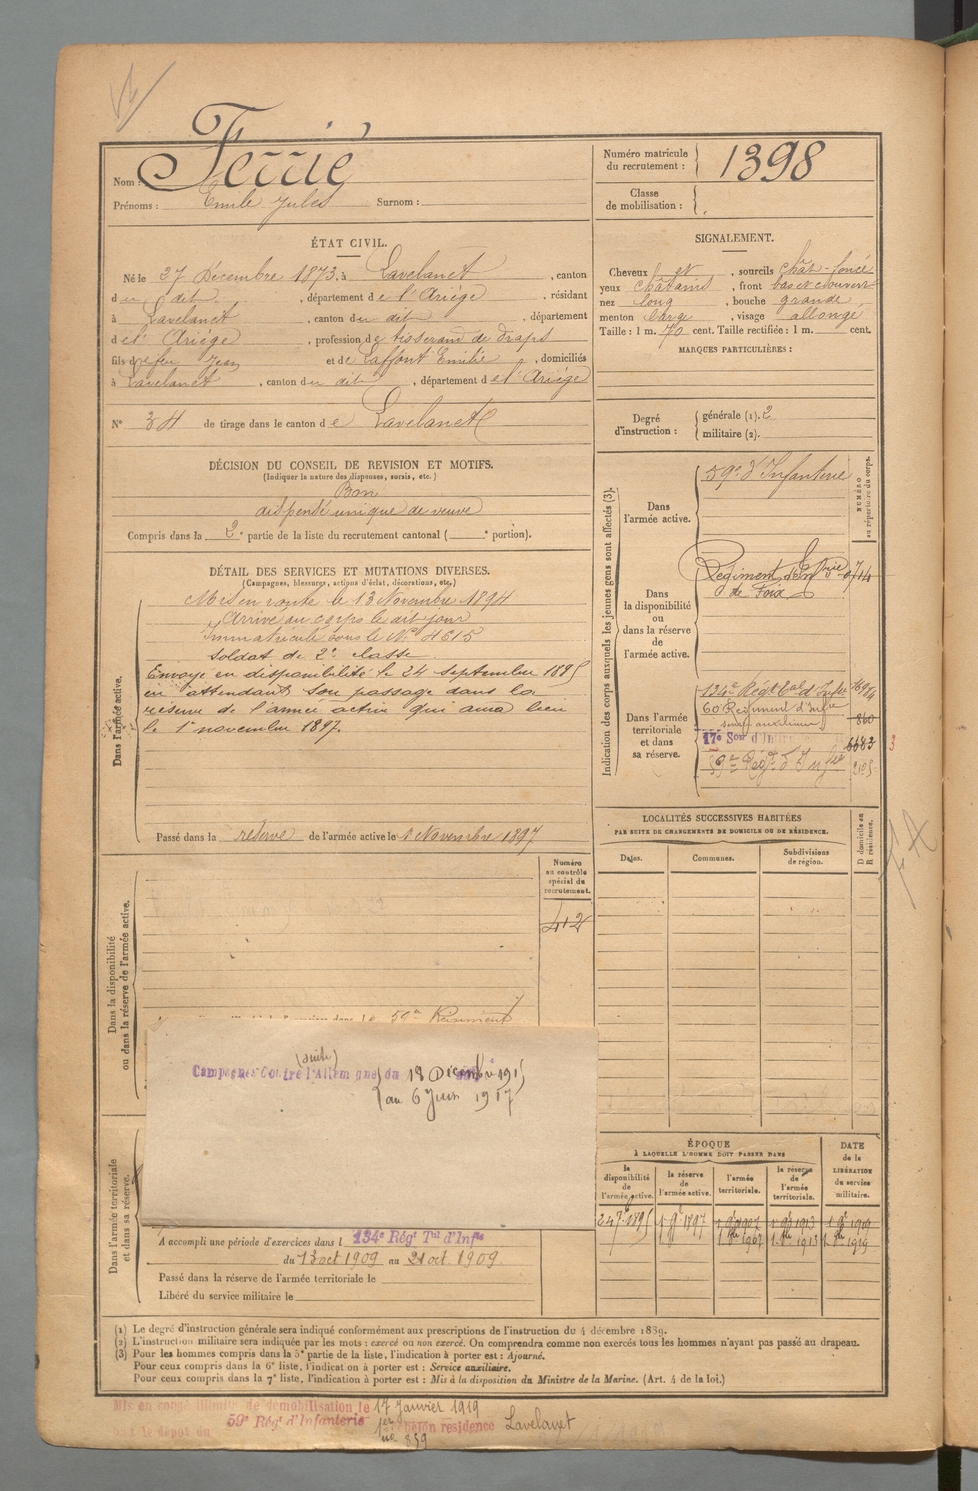 Ferrié
Nom :
Prénoms : Emile Jules Surnom :
Numéro matricule du recrutement : 1398
Classe de mobilisation :
ÉTAT CIVIL.
Né le 27 Décembre 1873, à Lavelanet, canton
du dit, département de l'Ariège, résidant
à Lavelanet, canton du dit, département
de l'Ariège, profession de tisserand de draps
fils de feu Jean et de Laffont Emilie, domiciliés
à Lavelanet, canton du dit, département de l'Ariège
N° 34 de tirage dans le canton de Lavelanet
SIGNALEMENT.
Cheveux et, sourcils chât-foncé
yeux châtains, front bas et découvert
nez long, bouche grande,
menton large, visage allongé
Taille : 1 m. 70 cent. Taille rectifiée : 1 m. cent.
MARQUES PARTICULIÈRES :
Degré d'instruction : générale (1). 2
militaire (2).
DÉCISION DU CONSEIL DE REVISION ET MOTIFS.
(Indiquer la nature des dispenses, sursis, etc.)
Bon
dispensé unique de veuve
Compris dans la 2e partie de la liste du recrutement cantonal ( e portion).
DÉTAIL DES SERVICES ET MUTATIONS DIVERSES.
(Campagnes, blessures, actions d'éclat, décorations, etc.)
Dans l'armée active.
Mis en route le 13 Novembre 1894
Arrivé au corps le dit jour
Immatriculé sous le N° 4615
soldat de 2e classe
Envoyé en disponibilité le 24 septembre 1895
en attendant son passage dans la
réserve de l'armée active qui aura lieu
le 1er novembre 1897.
Passé dans la réserve de l'armée active le 1 Novembre 1897
Indication des corps auxquels les jeunes gens sont affectés (3).
NUMÉRO au répertoire du corps.
Dans l'armée active.
59e d'Infanterie
Dans la disponibilité ou dans la réserve de l'armée active.
Régiment d'Inf
de Foix
Dans l'armée territoriale et dans sa réserve.
134e Régt Eal d'Infie
60 Régiment d'Infie 860
17e Son d'In 6683
59e Régt d'Infie
3
LOCALITÉS SUCCESSIVES HABITÉES
PAR SUITE DE CHANGEMENTS DE DOMICILE OU DE RÉSIDENCE.
Dates.
Communes.
Subdivisions de région.
D domicile en R résidence.
Dans la disponibilité ou dans la réserve de l'armée active.
Numéro au contrôle spécial du recrutement.
412
59e Régiment
(suite)
Campagne Contre l'Allemagne du 18 Décembre 1915
au 6 Juin 1917
Dans l'armée territoriale et dans sa réserve.
A accompli une période d'exercices dans l 134e Régt Tal d'Infie
du 13 oct 1909 au 21 oct 1909
Passé dans la réserve de l'armée territoriale le
Libéré du service militaire le
ÉPOQUE
À LAQUELLE L'HOMME DOIT PASSER DANS
la disponibilité de l'armée active.
la réserve de l'armée active.
l'armée territoriale.
la réserve de l'armée territoriale.
DATE de la LIBÉRATION du service militaire.
24 7bre 1895
1 9bre 1897
(1) Le degré d'instruction générale sera indiqué conformément aux prescriptions de l'instruction du 4 décembre 1889.
(2) L'instruction militaire sera indiquée par les mots : exercé ou non exercé. On comprendra comme non exercés tous les hommes n'ayant pas passé au drapeau.
(3) Pour les hommes compris dans la 5e partie de la liste, l'indication à porter est : Ajourné.
Pour ceux compris dans la 6e liste, l'indication à porter est : Service auxiliaire.
Pour ceux compris dans la 7e liste, l'indication à porter est : Mis à la disposition du Ministre de la Marine. (Art. 4 de la loi.)
Mis en congé illimité de démobilisation le 17 Janvier 1919
59e Régt d'Infanterie 1er échelon résidence Lavelanet
dépôt du 859